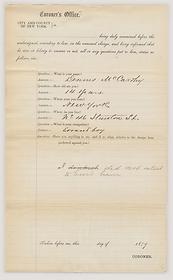 Coroner's Office.
CITY AND COUNTY
OF NEW YORK, } ss.
being duly examined before the
undersigned, according to law, on the annexed charge, and being informed that
he was at liberty to answer or not, all or any questions put to him, states as
follows, viz:
Question.—What is your name?
Answer.—Dennis McCarthy
Question.—How old are you?
Answer.—14 Years
Question.—Where were you born?
Answer.—New York
Question.—Where do you live?
Answer.—No 116 Stanton St.
Question.—What is your occupation?
Answer.—Errand boy
Question.—Have you anything to say, and if so, what, relative to the charge here
preferred against you?
I
Taken before me, this day of 1879
CORONER.